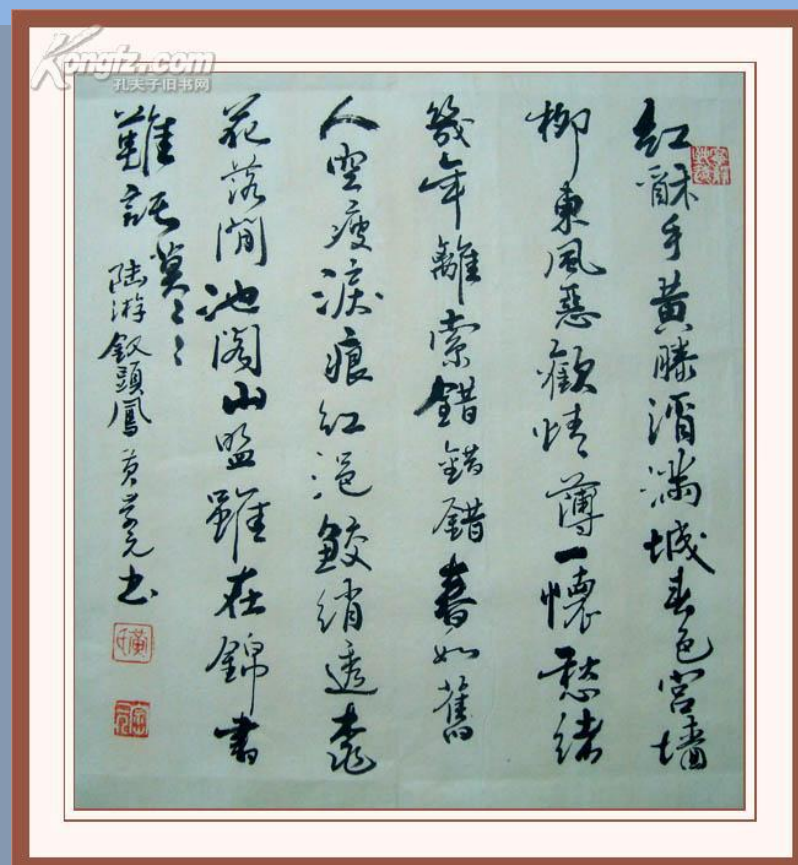 Kongfz.com
孔夫子旧书网
紅酥手黃滕酒滿城春色宮墻
柳東風惡歡情薄一懷愁緒
幾年離索錯錯錯春如舊
人空瘦淚痕紅浥鮫綃透桃
花落閒池閣山盟雖在錦書
難託莫〻〻
陆游釵頭鳳 黃元书